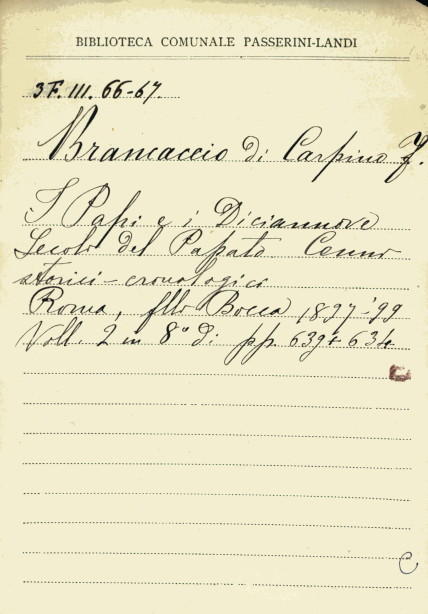 BIBLIOTECA COMUNALE PASSERINI-LANDI
3F. III. 66-67.
Brancaccio di Carpino F.
I Papi e i Diciannove
Secoli del Papato Cenni
storici-cronologici
Roma, flli Bocca 1897-'99
Voll. 2 in 8° di pp. 639+634
C